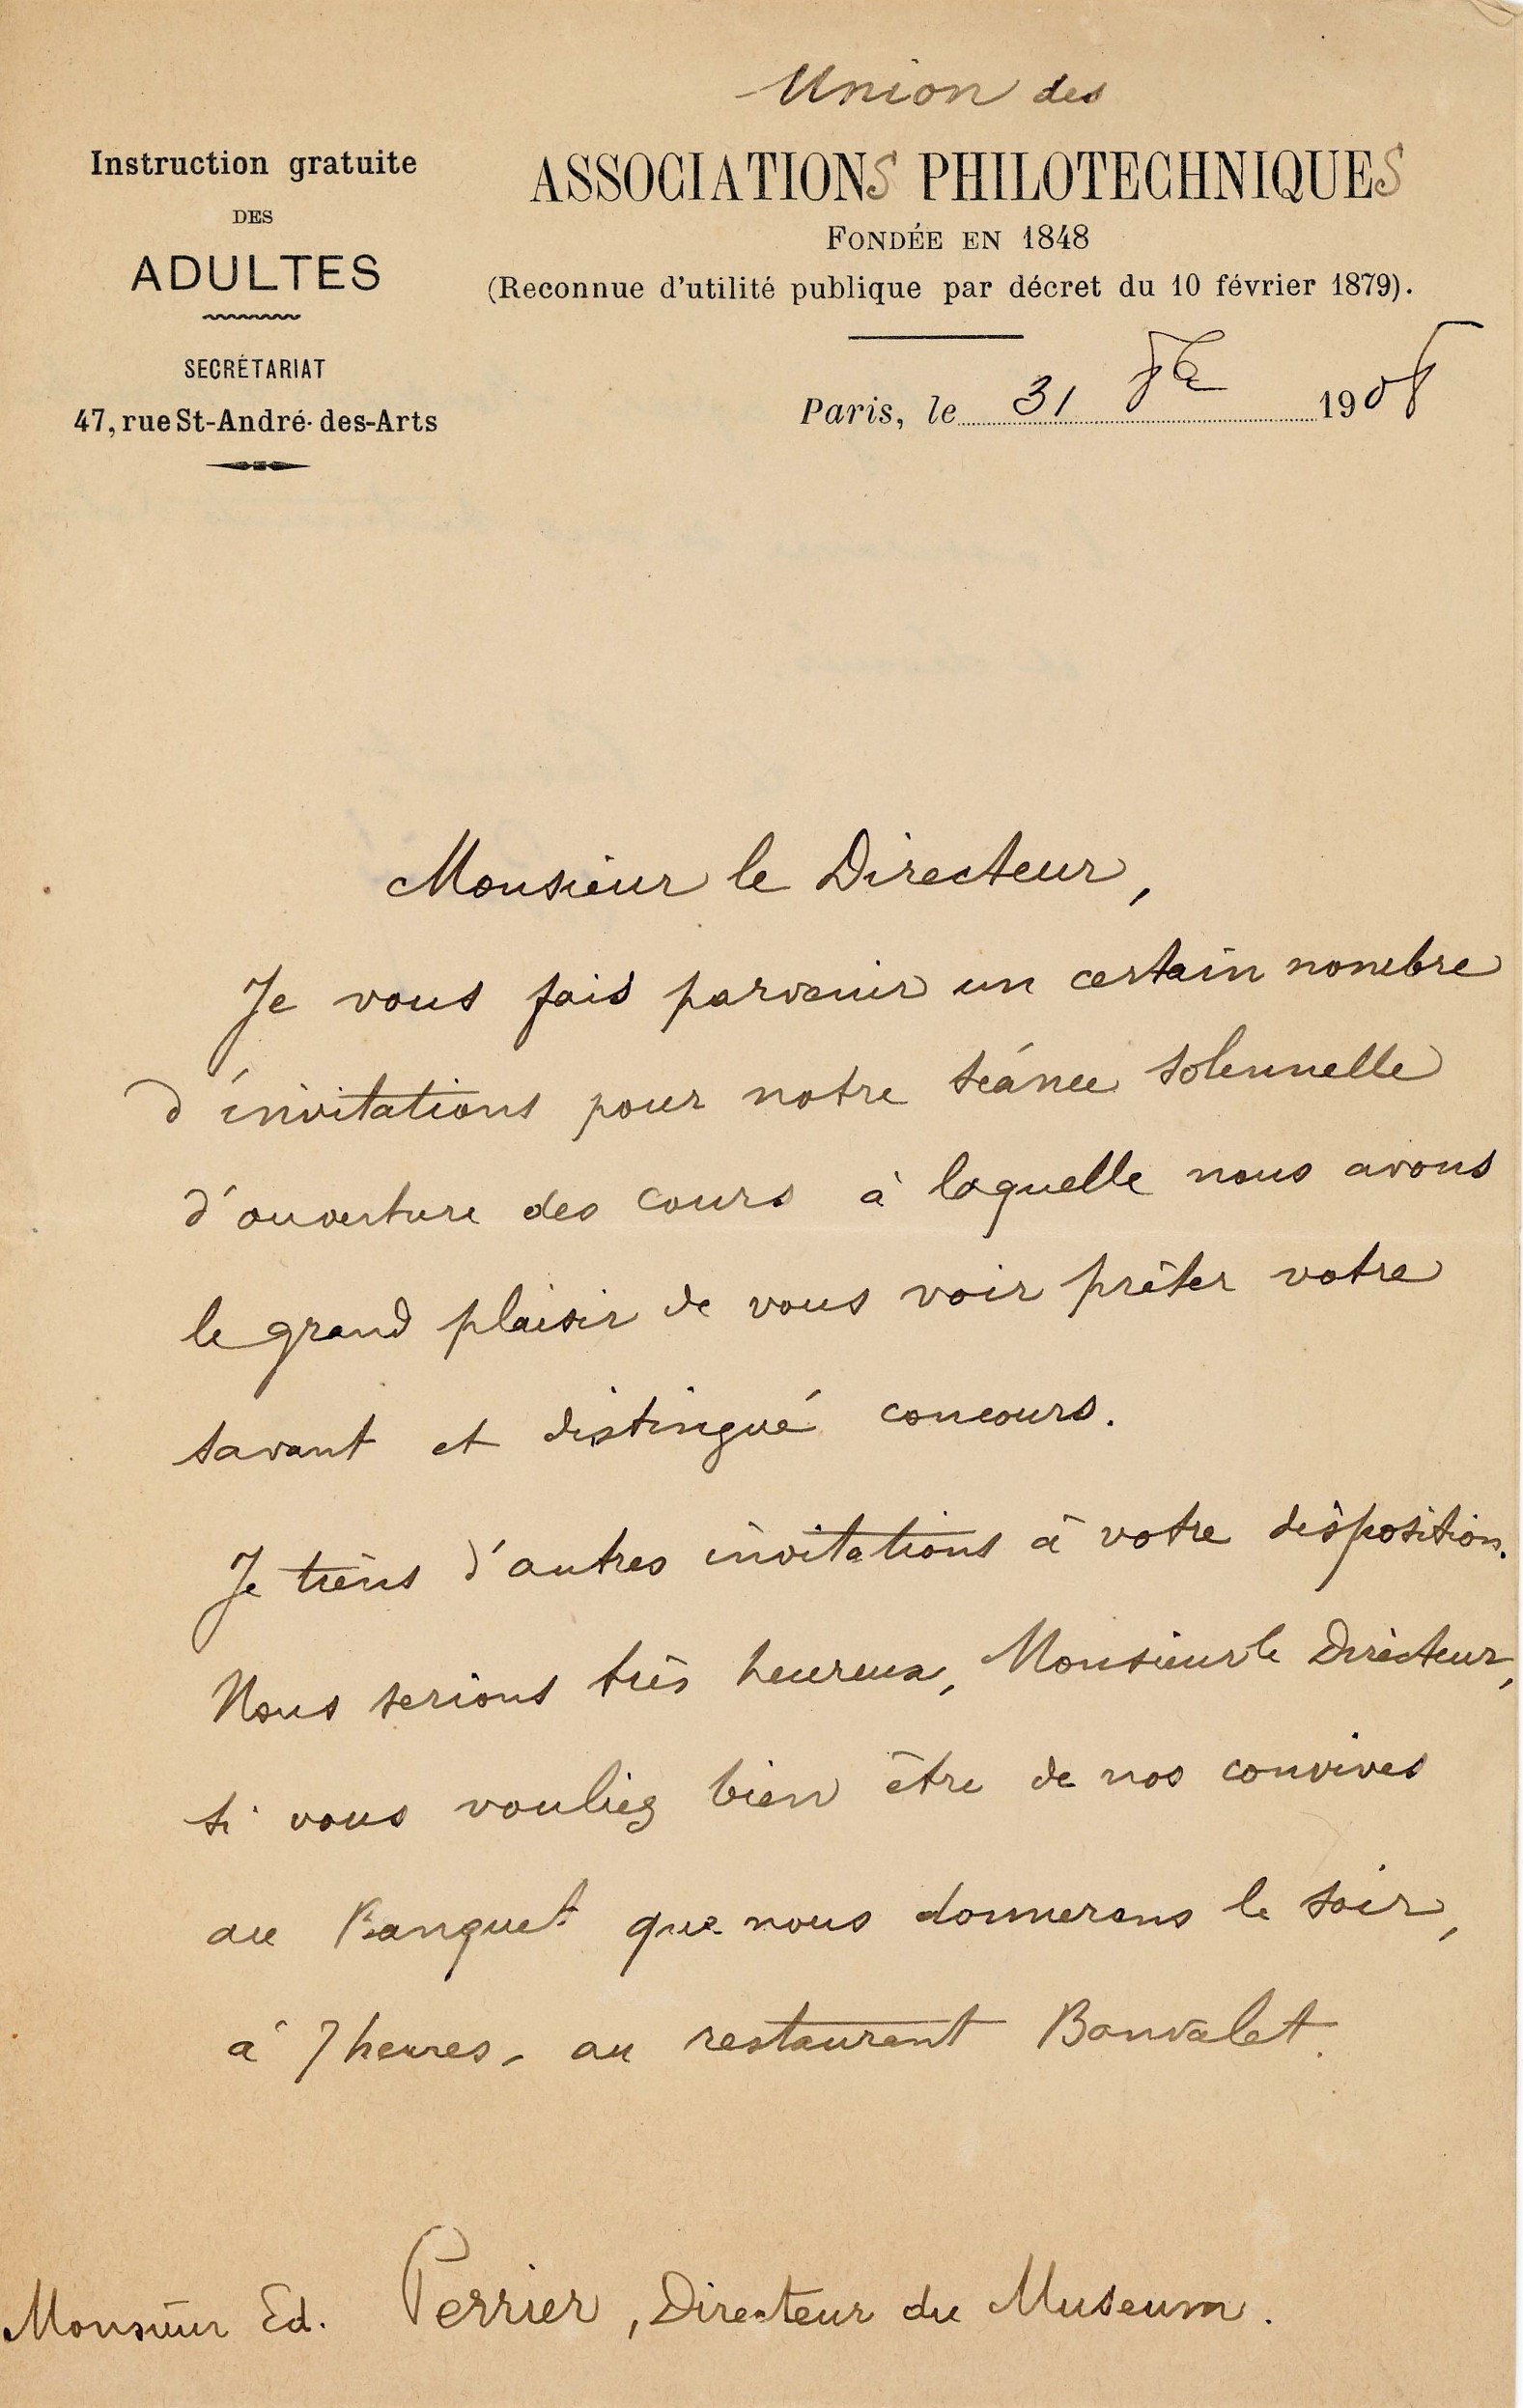 Union des
ASSOCIATIONS PHILOTECHNIQUES
FONDÉE EN 1848
(Reconnue d'utilité publique par décret du 10 février 1879).
Instruction gratuite
DES
ADULTES
SECRÉTARIAT
47, rue St-André-des-Arts
Paris, le 31 8bre 1905
Monsieur le Directeur,
Je vous fais parvenir un certain nombre
d'invitations pour notre séance solennelle
d'ouverture des cours à laquelle nous avons
le grand plaisir de vous voir prêter votre
savant et distingué concours.
Je tiens d'autres invitations à votre disposition.
Nous serions très heureux, Monsieur le Directeur,
si vous vouliez bien être de nos convives
au Banquet que nous donnerons le soir,
à 7 heures, au restaurant Bonvalet.
Monsieur Ed. Perrier, Directeur du Museum.